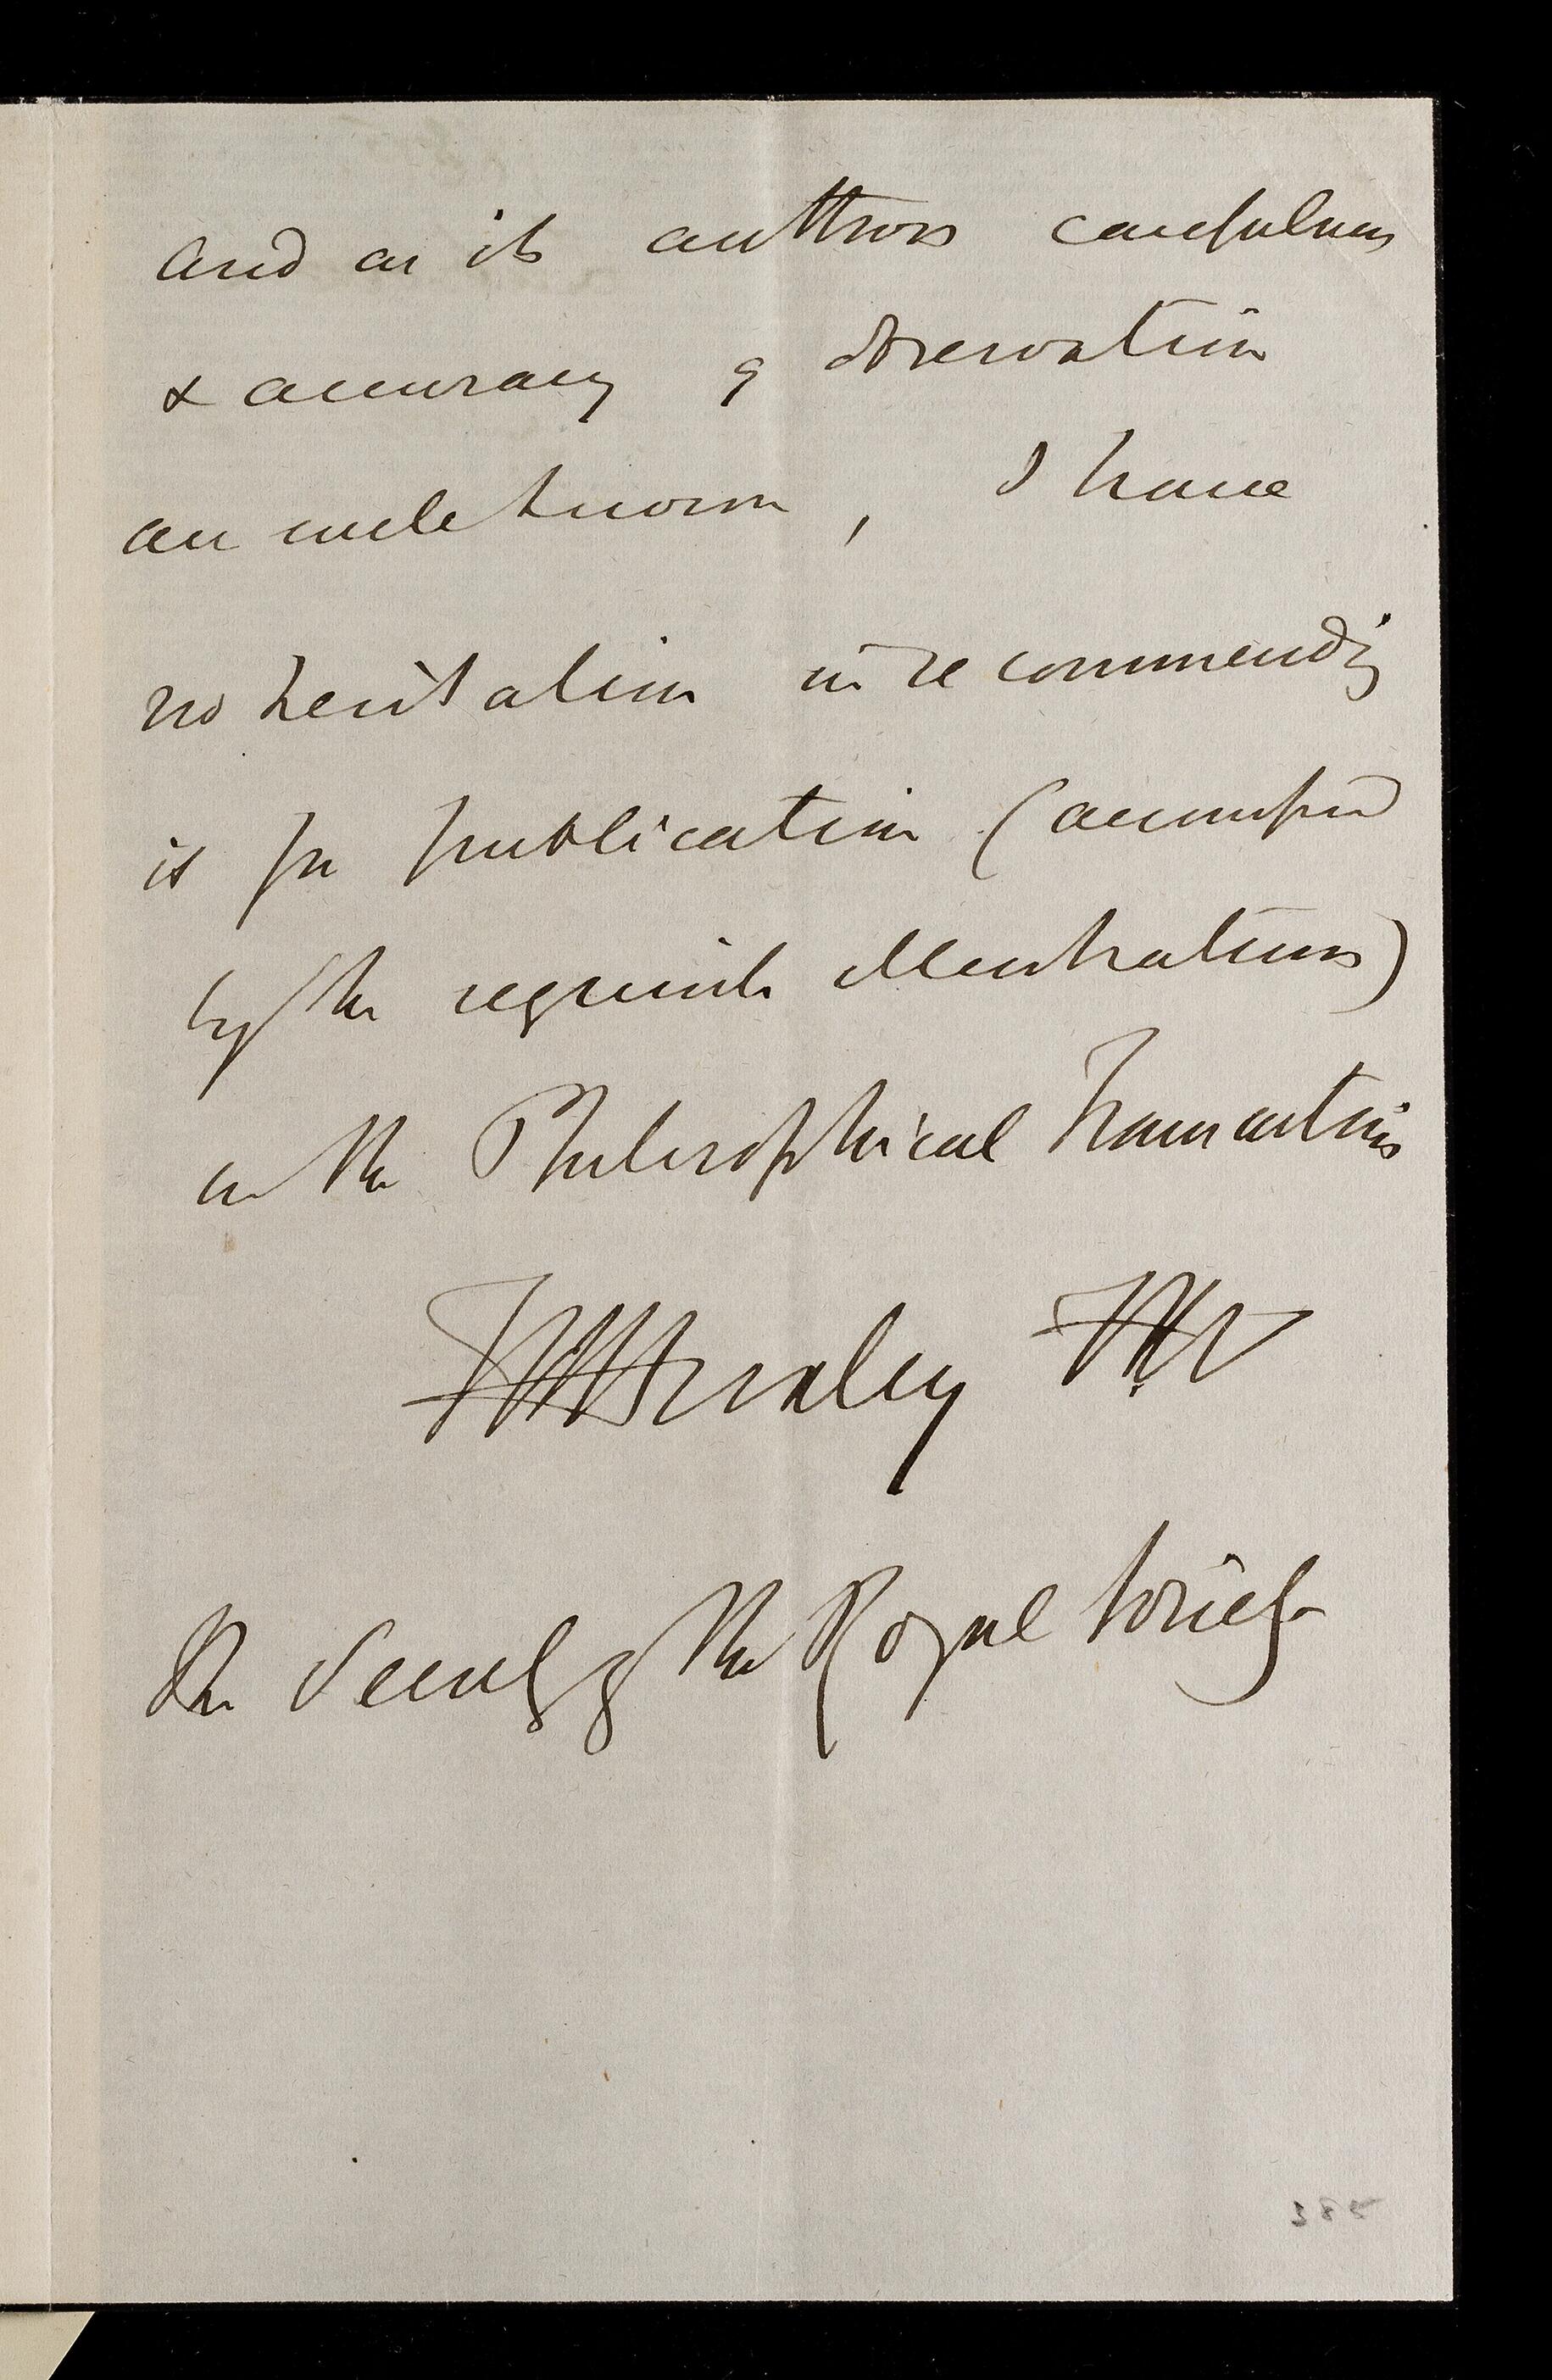 and as its authors carefulness
& accuracy of observation
are well known, I have
no hesitation in recommending
it for publication (accompanied
by the requisite illustrations)
in the Philosophical Transactions
THHuxley
The Secrety of the Royal Society
385